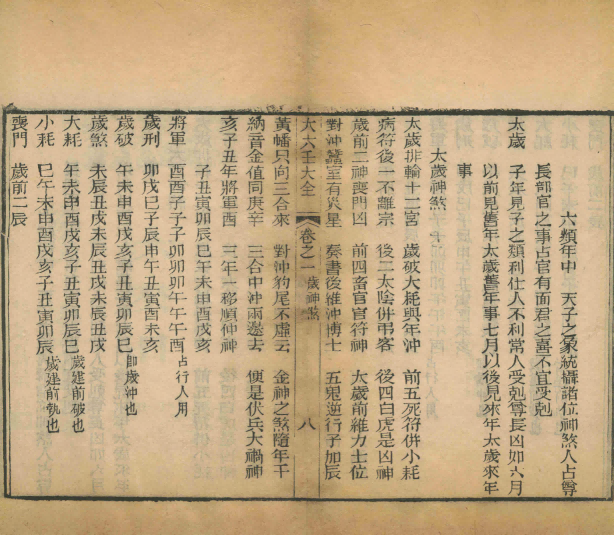 六類年中　天子之象統攝諸位神煞人占尊
長部官之事占官有而君之喜不宜受剋
太歲　子年見子之類利仕人不利常人受剋尊長凶如六月
以前見舊年太歲舊年事七月以後見來年太歲來年
事
太歲神煞
太歲排輪十二宮　歲破大耗與年沖　前五死符併小耗
病符後一不離宗　後二太陰併弔客　後四白虎是凶神
歲前二神喪門凶　前四畜官官符神　太歲前維力士位
對沖蠶室有災星　奏書後維沖博士　五鬼逆行子加辰
黃幡只向三合來　對沖豹尾不虛云　金神之煞隨年干
納音金值同庚辛　三合中沖兩邊去　便是伏兵大禍神
亥子丑年將軍酉　三年一移順仲神
大六壬大全　卷之一　歲神煞　八
子丑寅卯辰巳午未申酉戌亥
將軍　酉酉子子子卯卯卯午午午酉　占行人用
歲刑　卯戌巳子辰申午丑寅酉未亥
歲破　午未申酉戌亥子丑寅卯辰巳　即歲沖也
歲煞　未辰丑戌未辰丑戌未辰丑戌
大耗　午未申酉戌亥子丑寅卯辰巳　歲建前破也
小耗　巳午未申酉戌亥子丑寅卯辰　歲建前執也
喪門　歲前二辰